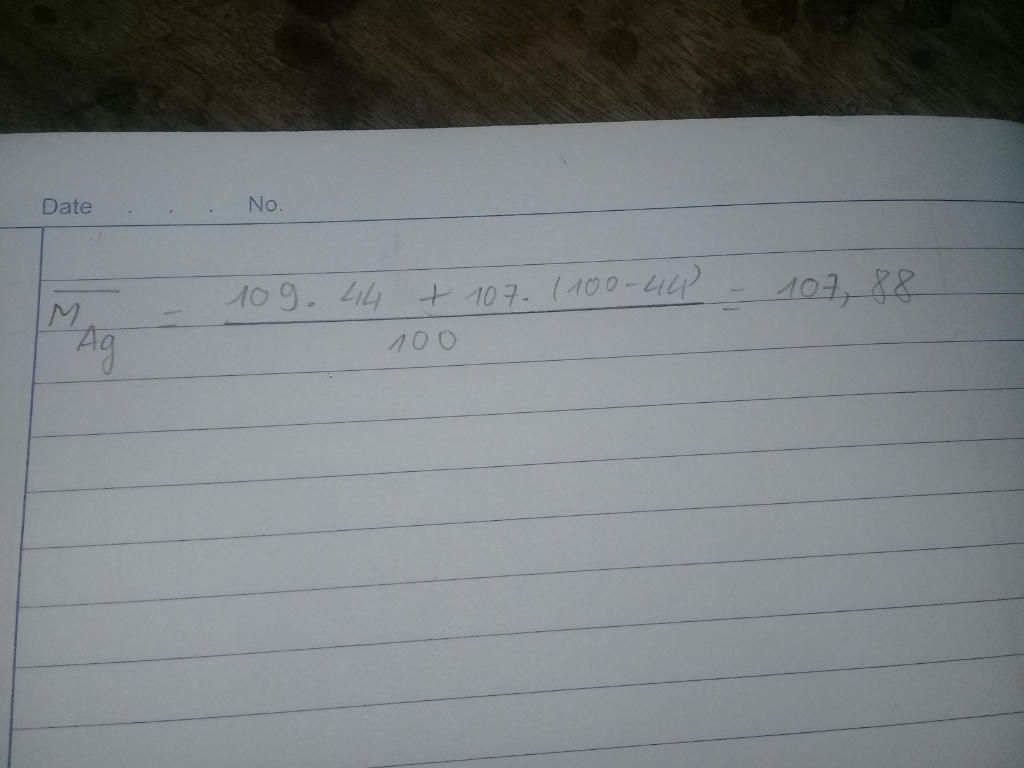 Date . . . No.
M̅_Ag = (109 . 44 + 107 . (100 - 44)) / 100 = 107,88